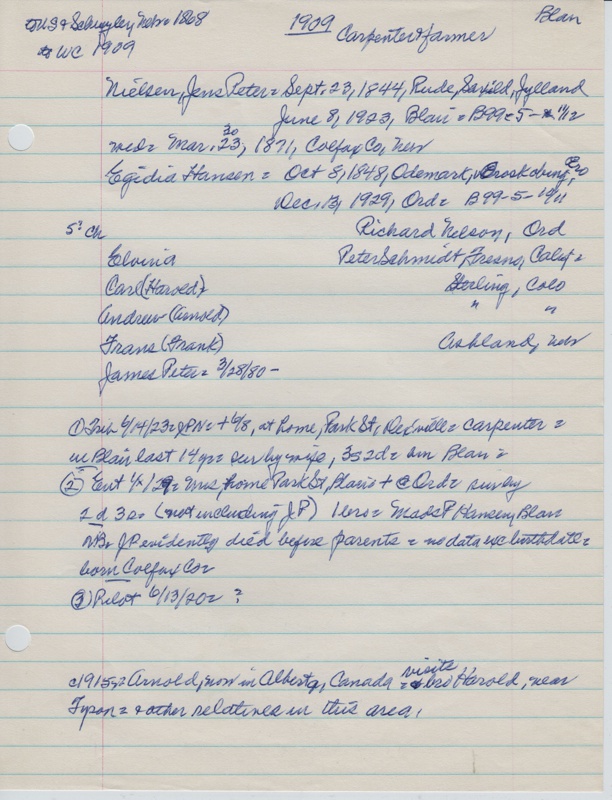 to US & Schuyler, Nebr = 1868
1909
Blair
to WC 1909
Carpenter & farmer
Nielsen, Jens Peter = Sept. 23, 1844, Rude, Jylland
June 8, 1923, Blair = B99-5-11/12
wed = Mar. 23, 30 1871, Colfax Co, Nebr
Egidia Hansen = Oct 8, 1848, Odemark,
Dec. 13, 1929, Ord = B99-5-10/11
5? Ch
Richard Nelson, Ord
Elvina Peter Schmidt, Fresno, Calif =
Carl (Harold) Sterling, Colo
Andrew (Arnold) " "
Frans (Frank) Ashland, Nebr
James Peter = 3/28/80 -
① Trib 6/14/23 = JPN = + 6/8, at home, Park St, = carpenter =
in Blair last 14 yr = sur by wife, 3s 2d = bur Blair =
② Ent = Mrs, home Park St, Blair + @ Ord = surv by
2 d 3 s = (not including JP) 1 bro = Mads P Hansen, Blair
NB = JP evidently died before parents = no data exc birthdate =
born Colfax Co =
③ Pilot 6/13/20 = ?
c1915 = Arnold, now in Alberta, Canada = visits bro Harold, near
Tyson = & other relatives in this area.